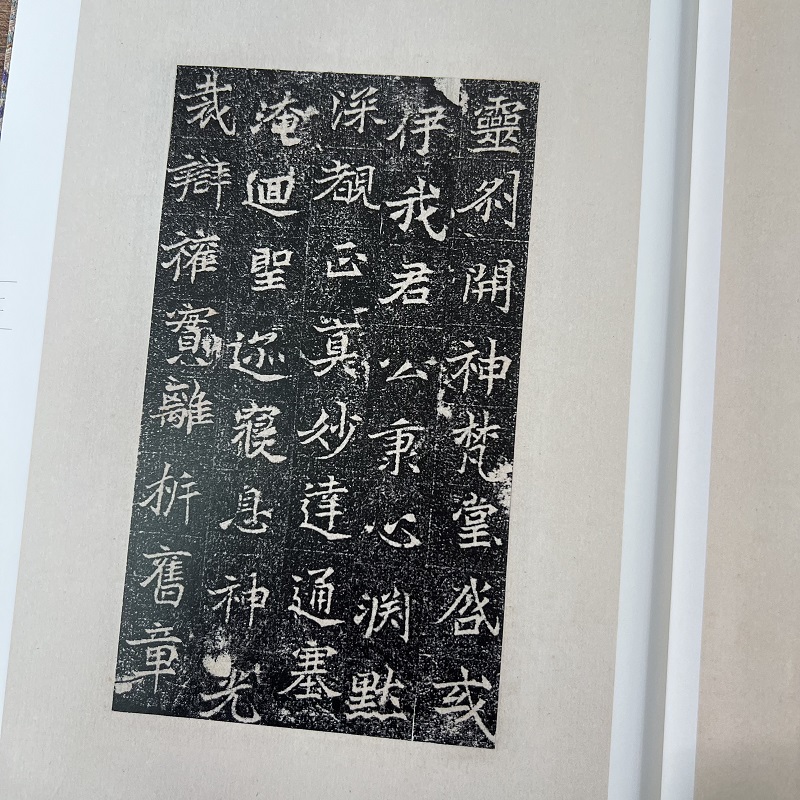 靈刹開神梵堂启或
伊我君公秉心渕默
深覩正真妙達通塞
淹迴聖迩寢息神光
裁辯權實離析舊章